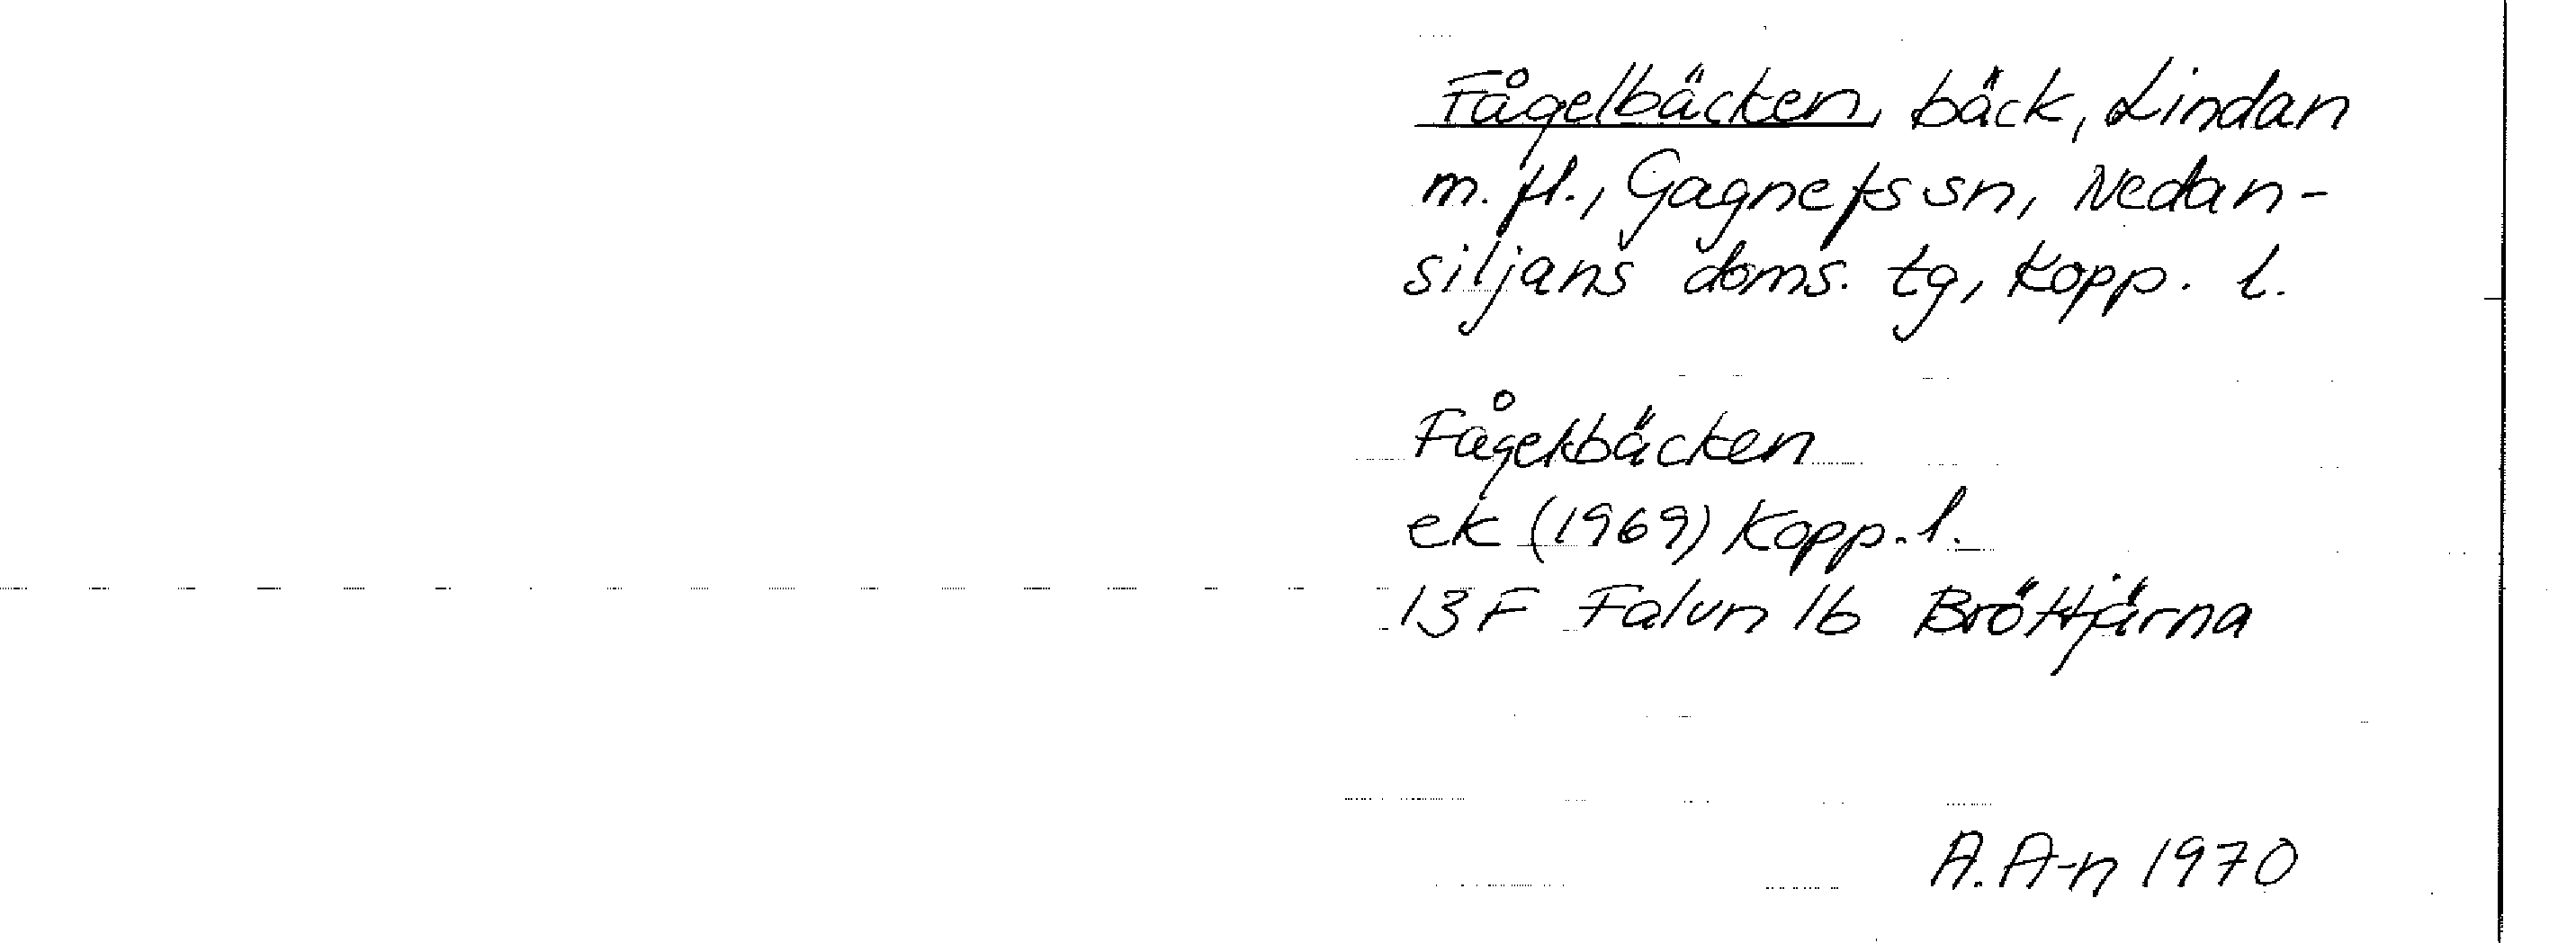 Fågelbäcken, bäck, Lindan
m. fl., Gagnefs sn, Nedan-
siljans doms. tg, Kopp. l.
Fågelbäcken
ek (1969) Kopp. l.
13F Falun 1b Bröttjärna
A. A-n 1970